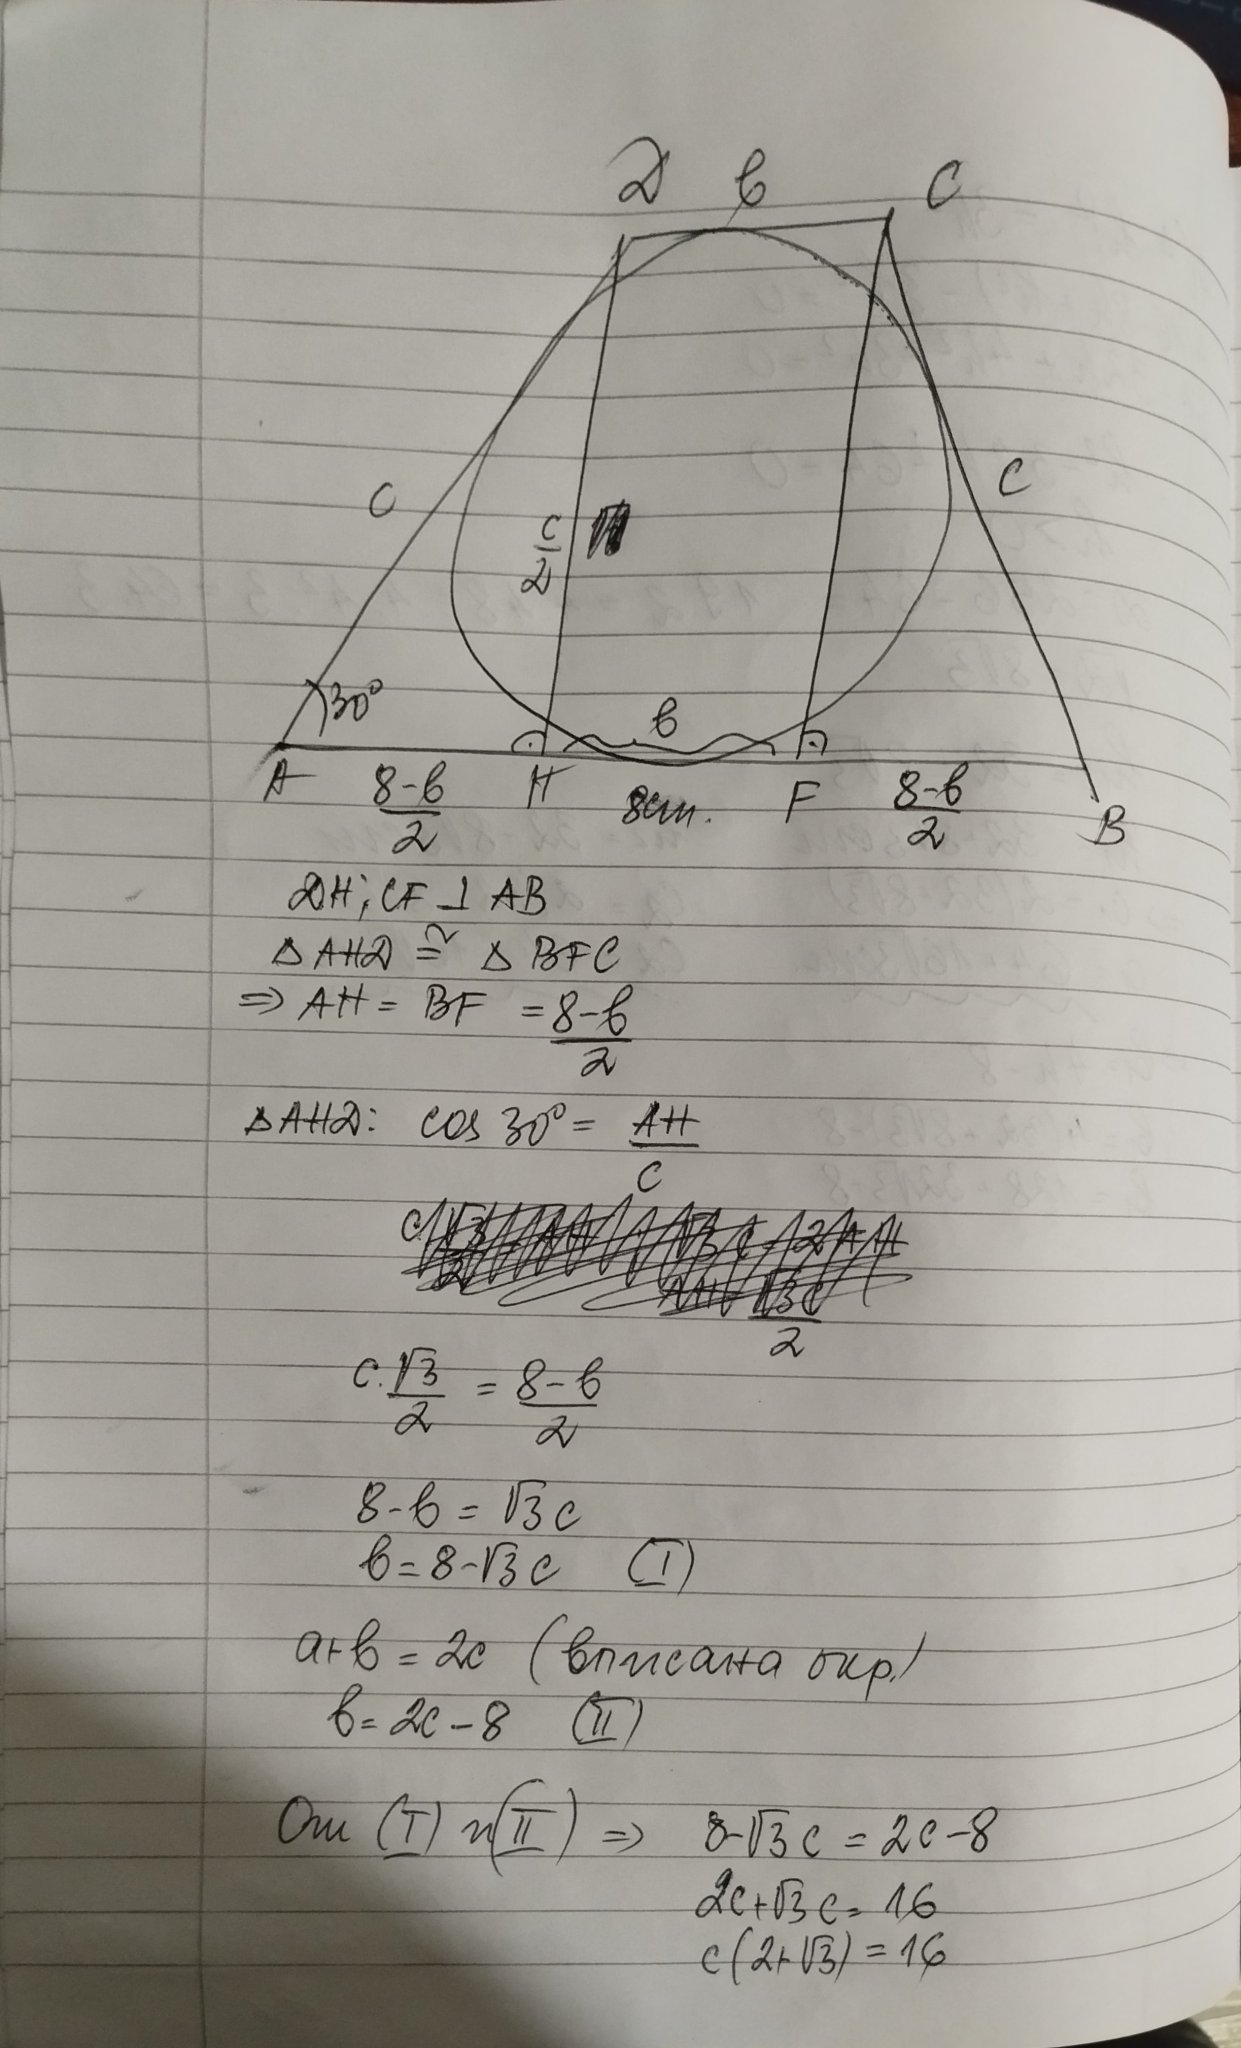 D в C
C C
c/2
30°
в
A (8-в)/2 H 8cm. F (8-в)/2 B
DH; CF ⊥ AB
△ AHD ≅ △ BFC
=> AH = BF = (8-в)/2
△AHD: cos 30° = AH/c
c.√3/2 = (8-в)/2
8-в = √3 c
в = 8-√3 c (I)
a+в = 2c (вписана окр.)
в = 2c - 8 (II)
От (I) и (II) => 8-√3 c = 2c-8
2c+√3 c = 16
c(2+√3) = 16